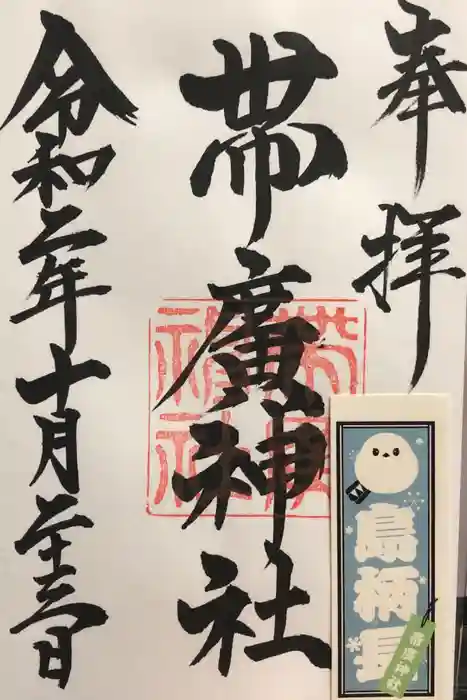 奉拝
帯廣神社
令和二年十月二十三日
帯廣神社
島柄長
帯廣神社